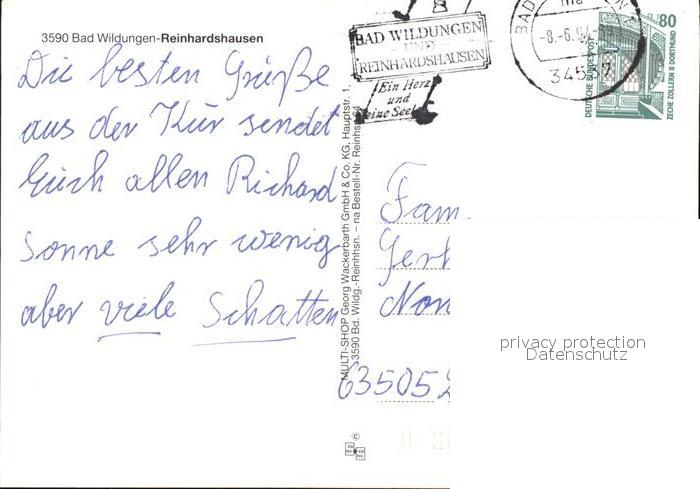 3590 Bad Wildungen-Reinhardshausen
Die besten Grüße
aus der Kur sendet
Euch allen Richard
Sonne sehr wenig
aber viele Schatten
MULTI-SHOP Georg Wackerbarth GmbH & Co. KG, Hauptstr. 1,
3590 Bd. Wildg.-Reinhhsn. – na Bestell-Nr. Reinhs
BAD WILDUNGEN
UND
REINHARDSHAUSEN
Ein Herz
und
eine Seele
BAD
-8.-6.
3457
80
DEUTSCHE BUNDESPOST
ZECHE ZOLLERN II DORTMUND
Fam
Gerh
Non
63505
privacy protection
Datenschutz
©